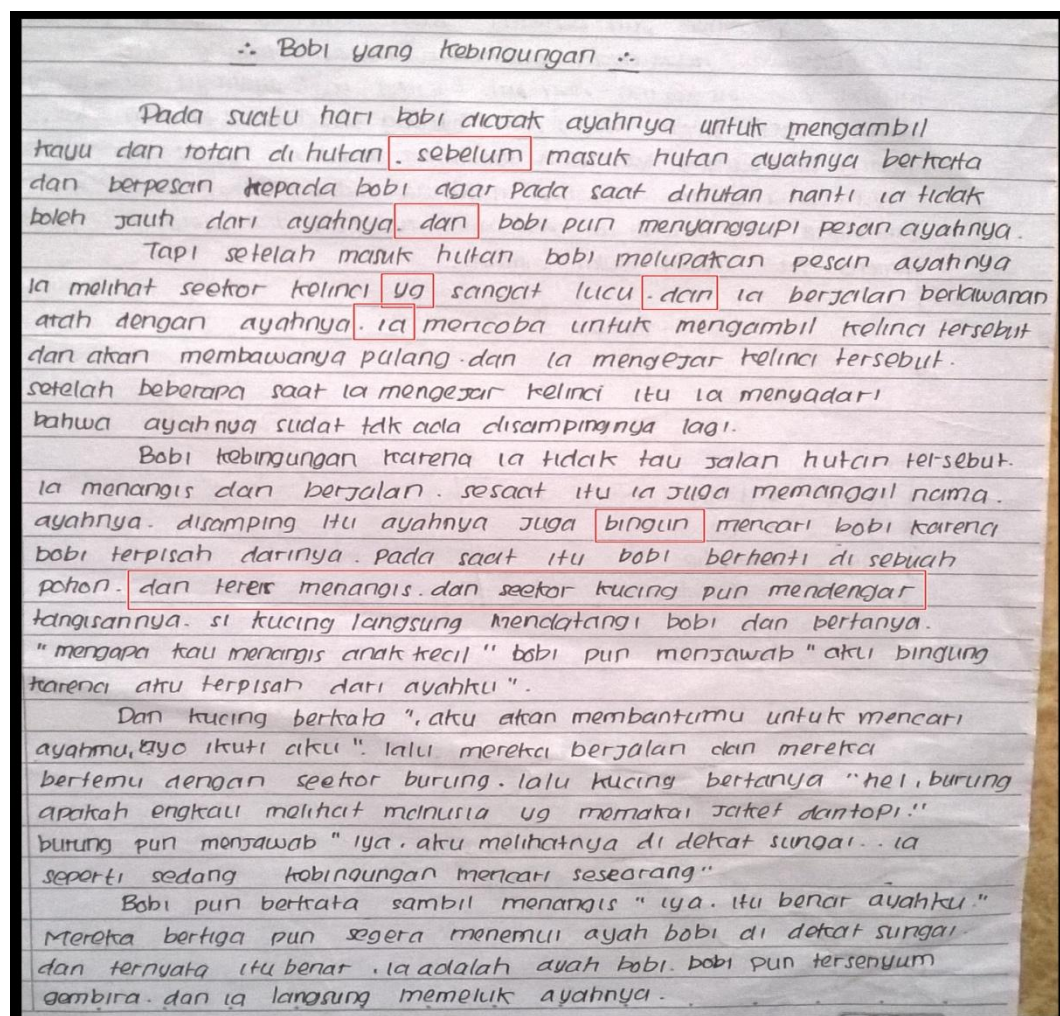 ∴ Bobi yang kebingungan ∴
Pada suatu hari bobi diajak ayahnya untuk mengambil
kayu dan rotan di hutan. sebelum masuk hutan ayahnya berkata
dan berpesan kepada bobi agar pada saat dihutan nanti ia tidak
boleh jauh dari ayahnya. dan bobi pun menyanggupi pesan ayahnya.
Tapi setelah masuk hutan bobi melupakan pesan ayahnya
ia melihat seekor kelinci yg sangat lucu. dan ia berjalan berlawanan
arah dengan ayahnya. ia mencoba untuk mengambil kelinci tersebut
dan akan membawanya pulang. dan ia mengejar kelinci tersebut.
setelah beberapa saat ia mengejar kelinci itu ia menyadari
bahwa ayahnya sudat tdk ada disampingnya lagi.
Bobi kebingungan karena ia tidak tau jalan hutan tersebut.
ia menangis dan berjalan. sesaat itu ia juga memanggil nama.
ayahnya. disamping itu ayahnya juga bingun mencari bobi karena
bobi terpisah darinya. pada saat itu bobi berhenti di sebuah
pohon. dan menangis. dan seekor kucing pun mendengar
tangisannya. si kucing langsung mendatangi bobi dan bertanya.
"mengapa kau menangis anak kecil" bobi pun menjawab "aku bingung
karena aku terpisah dari ayahku".
Dan kucing berkata ", aku akan membantumu untuk mencari
ayahmu, ayo ikuti aku". lalu mereka berjalan dan mereka
bertemu dengan seekor burung. lalu kucing bertanya "hei, burung
apakah engkau melihat manusia yg memakai jaket dantopi."
burung pun menjawab "iya. aku melihatnya di dekat sungai.. ia
seperti sedang kebingungan mencari seseorang"
Bobi pun berkata sambil menangis "iya. itu benar ayahku."
Mereka bertiga pun segera menemui ayah bobi di dekat sungai.
dan ternyata itu benar. ia adalah ayah bobi. bobi pun tersenyum
gembira. dan ia langsung memeluk ayahnya.